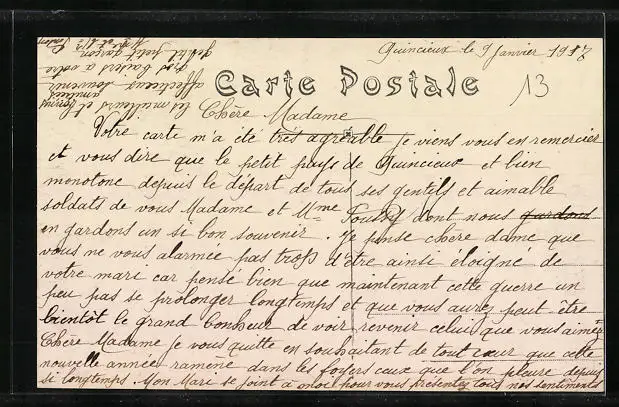 Quincieux le 9 Janvier 1917
Carte Postale
13
Chère Madame
Votre carte m'a été très agréable je viens vous en remercier
et vous dire que le petit pays de Quincieux et bien
monotone depuis le départ de tous ses gentils et aimable
soldats de vous Madame et Mme dont nous gardons
en gardons un si bon souvenir. Je pense chère dame que
vous ne vous alarmée pas trop d'être ainsi éloigne de
votre mari car pensé bien que maintenant cette guerre un
peu pas se prolonger longtemps et que vous aurez peut-être
bientôt le grand bonheur de voir revenir celui que vous aimée
Chère Madame je vous quitte en souhaitant de tout cœur que cette
nouvelle année ramène dans les foyers ceux que l'on pleure depuis
si longtemps. Mon Mari se joint à moi pour vous présentez tous nos sentiments
les meilleurs et
affectueux souvenir
gros baisers à votre
gentil petit garçon